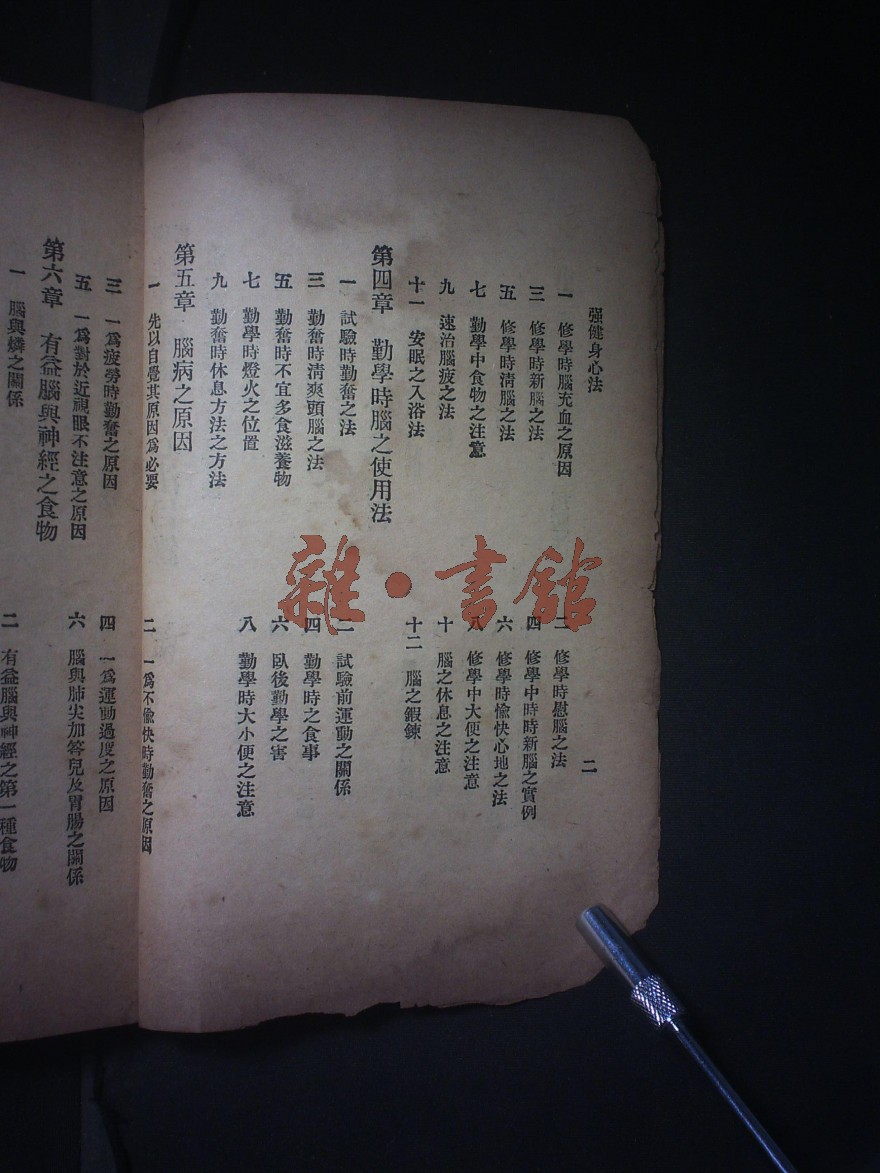 强健身心法
二
一　修學時腦充血之原因
二　修學時慰腦之法
三　修學時新腦之法
四　修學中時時新腦之實例
五　修學時清腦之法
六　修學時愉快心地之法
七　勤學中食物之注意
八　修學中大便之注意
九　速治腦疲之法
十　腦之休息之注意
十一　安眠之入浴法
十二　腦之鍛鍊
第四章　勤學時腦之使用法
一　試驗時勤奮之法
二　試驗前運動之關係
三　勤奮時清爽頭腦之法
四　勤學時之食事
五　勤奮時不宜多食滋養物
六　臥後勤學之害
七　勤學時燈火之位置
八　勤學時大小便之注意
九　勤奮時休息方法之方法
第五章　腦病之原因
一　先以自覺其原因爲必要
二　一爲不愉快時勤奮之原因
三　一爲疲勞時勤奮之原因
四　一爲運動過度之原因
五　一爲對於近視眼不注意之原因
六　腦與肺尖加答兒及胃腸之關係
第六章　有益腦與神經之食物
一　腦與燐之關係
二　有益腦與神經之第一種食物
雜·書館